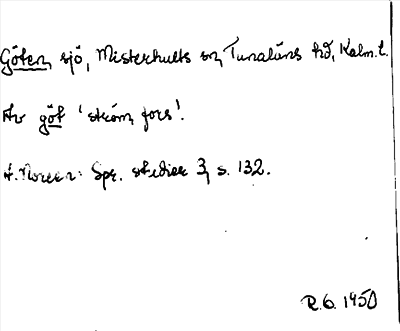 Göten, sjö, Misterhults sn, Tunaläns hd, Kalm. l.
Av göt 'ström, fors'.
A. Noreen: Spr. studier 3, s. 132.
R. G. 1950